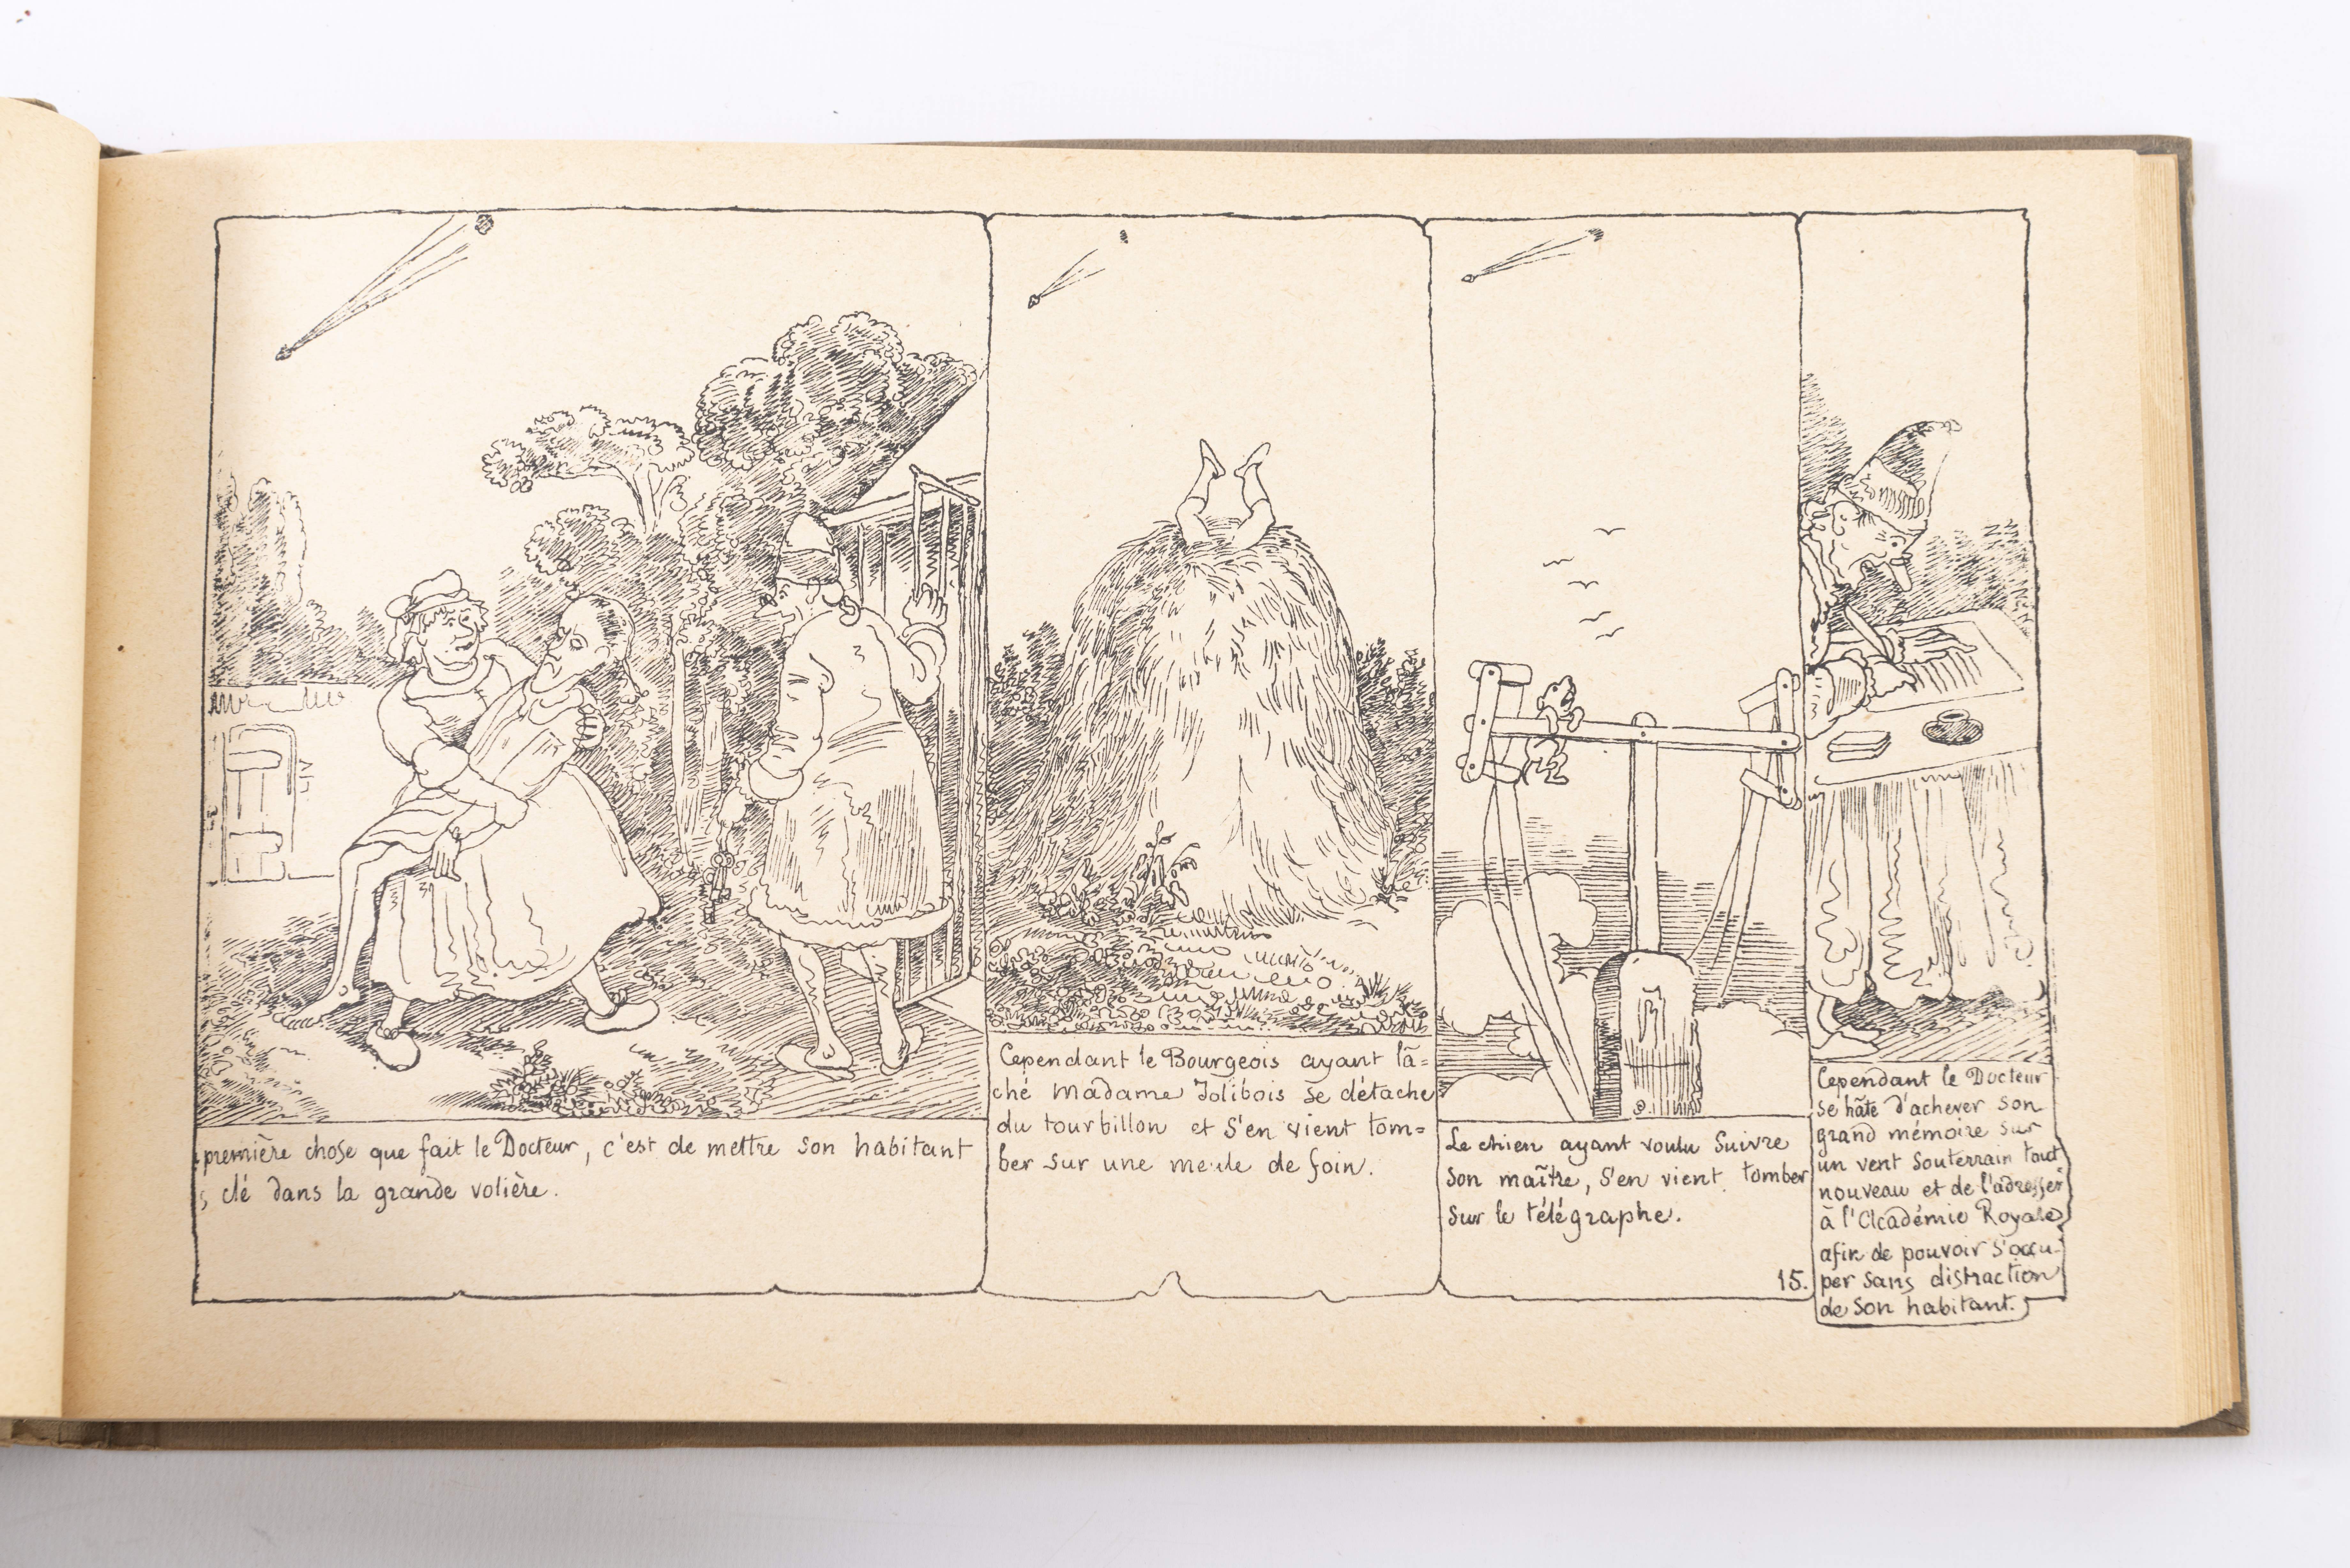 première chose que fait le Docteur, c'est de mettre son habitant
s clé dans la grande volière.
Cependant le Bourgeois ayant lâ=
ché Madame Jolibois se détache
du tourbillon et s'en vient tom=
ber sur une meule de foin.
Le chien ayant voulu suivre
son maître, s'en vient tomber
sur le télégraphe.
15.
Cependant le Docteur
se hâte d'achever son
grand mémoire sur
un vent souterrain tout
nouveau et de l'adresser
à l'Académie Royale
afin de pouvoir s'occu-
per sans distraction
de son habitant.